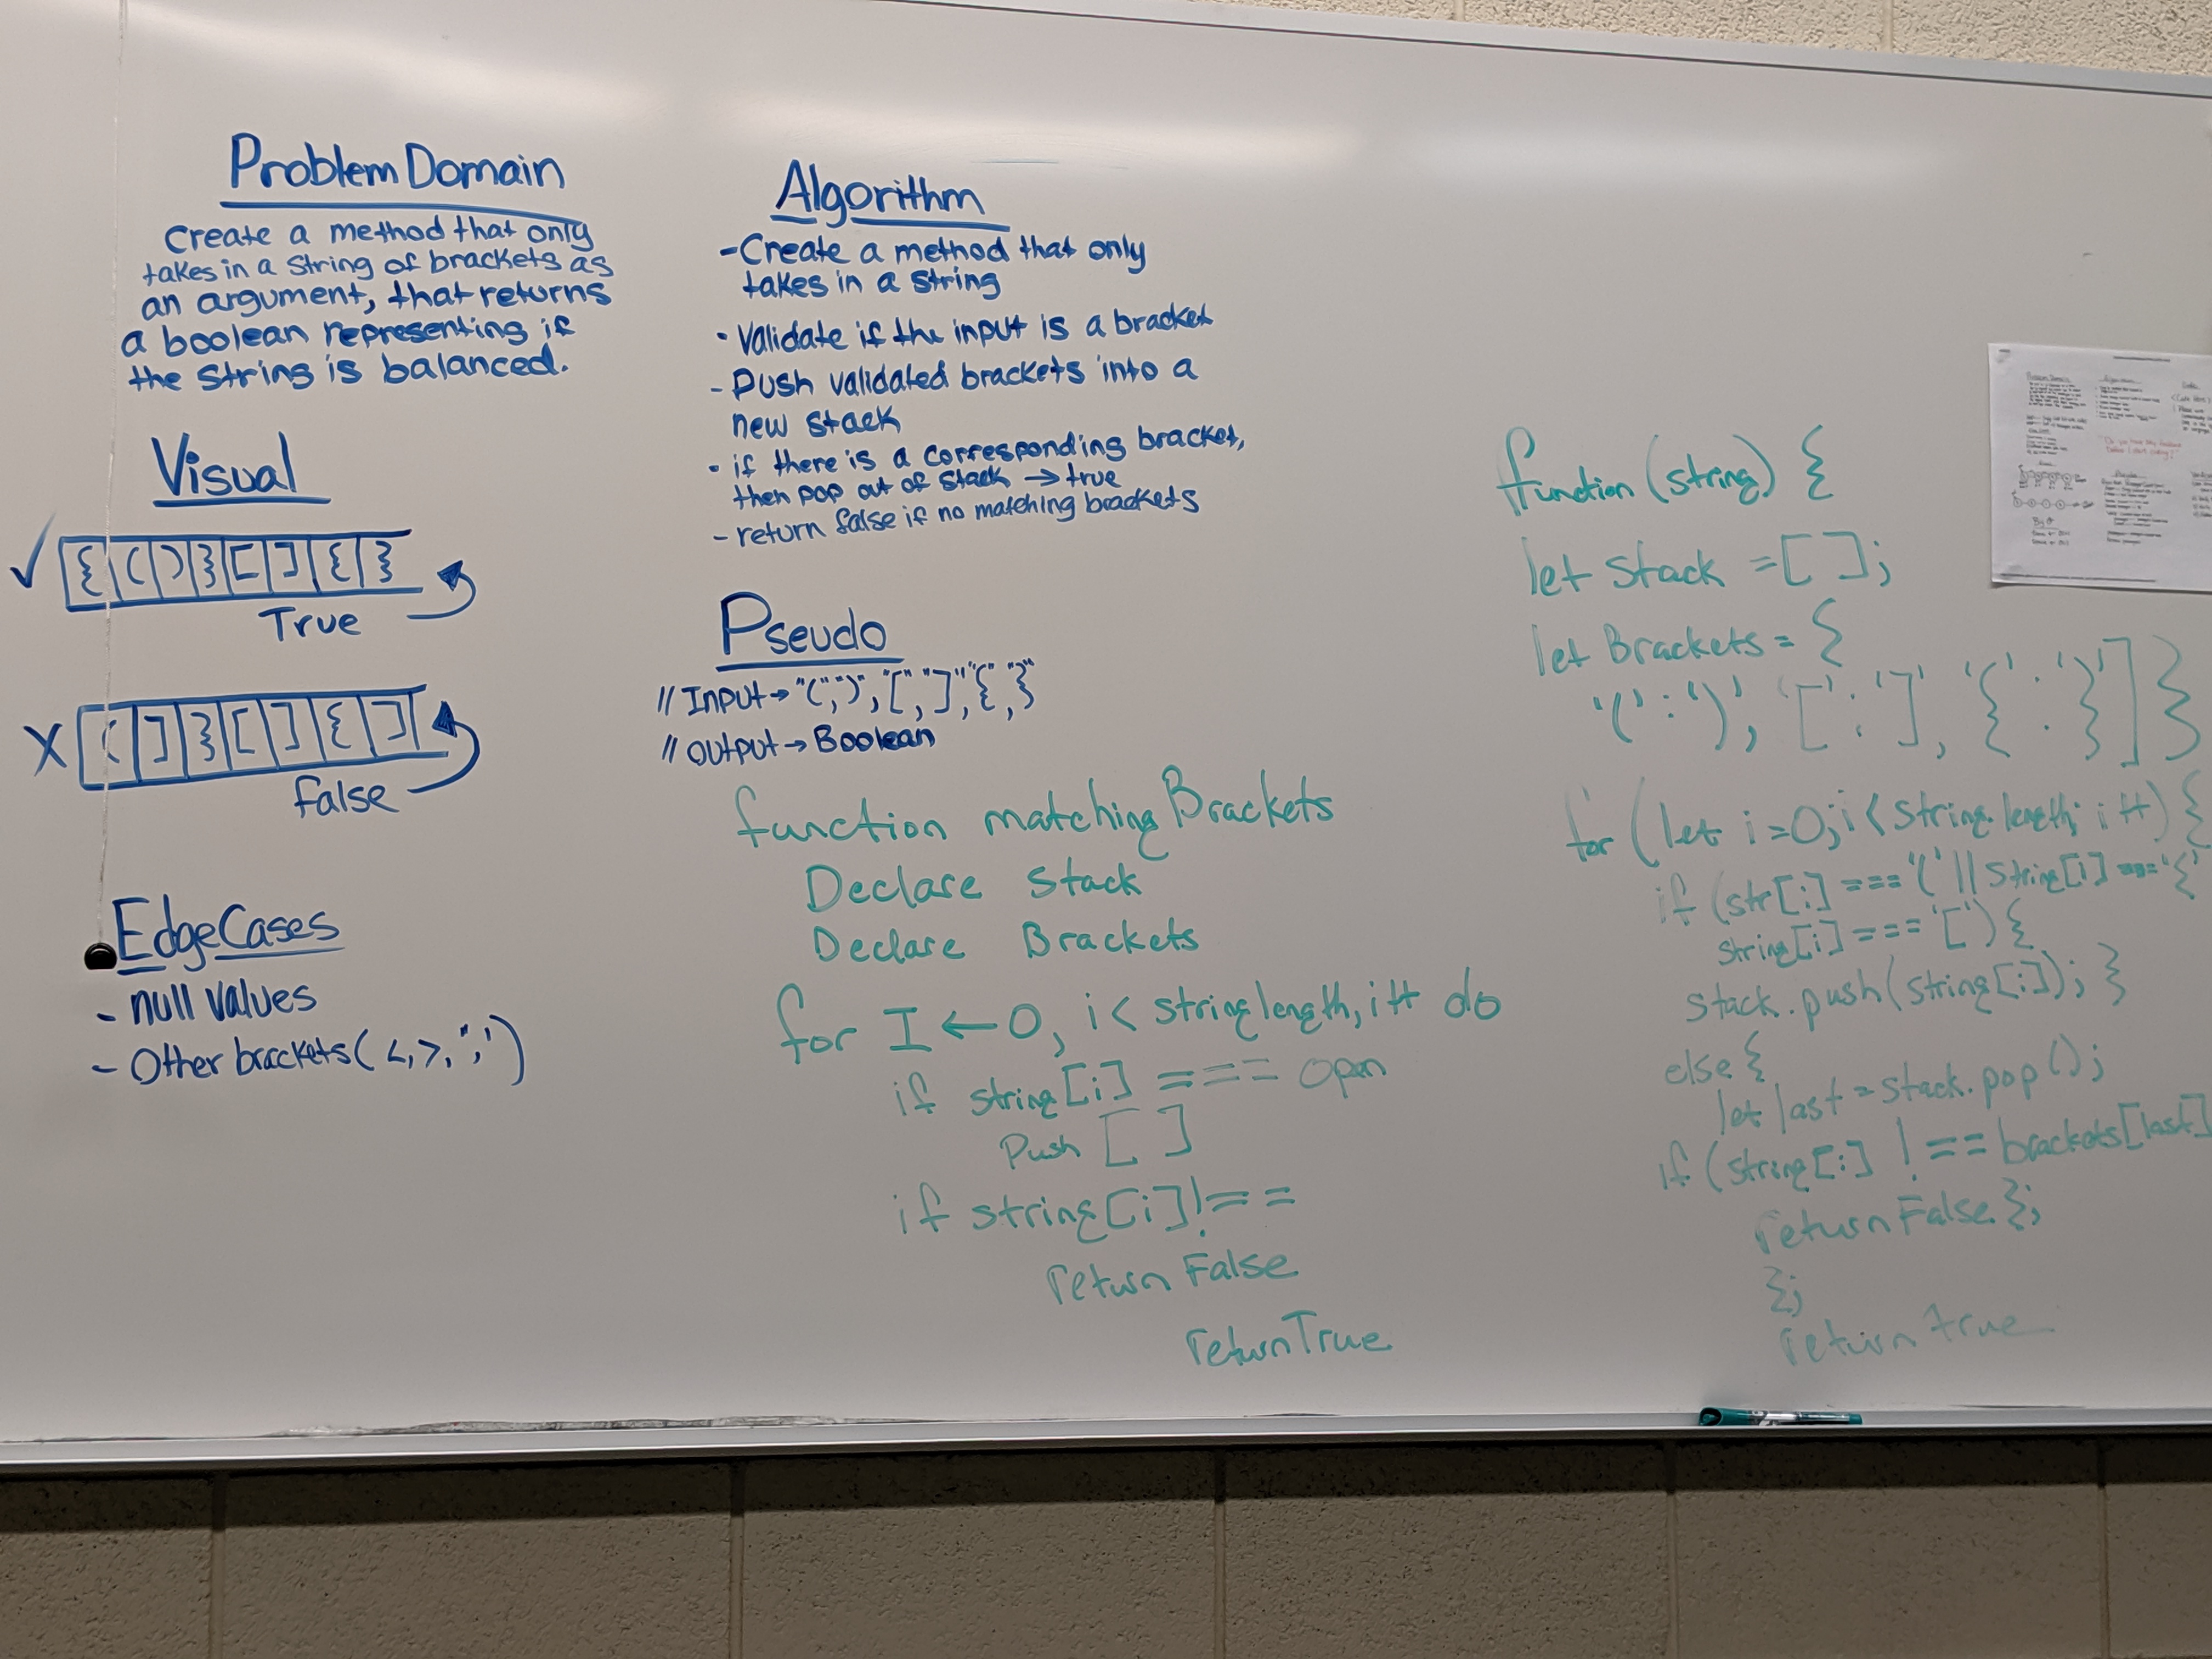 Problem Domain
Create a method that only
takes in a string of brackets as
an argument, that returns
a boolean representing if
the string is balanced.
Visual
✓ { ( ) } [ ] { }
True
X ( ] } [ ] { ]
false
Edge Cases
- null values
- Other brackets ( <, >, ", ' )
Algorithm
- Create a method that only
takes in a string
- Validate if the input is a bracket
- Push validated brackets into a
new stack
- if there is a corresponding bracket,
then pop out of stack → true
- return false if no matching brackets
Pseudo
// Input → "(", ")", "[", "]", "{", }"
// Output → Boolean
function matching Brackets
Declare Stack
Declare Brackets
for I ← 0, i < string length, i++ do
if string[i] === open
Push [ ]
if string[i] !==
return False
return True
function (string) {
let stack = [ ];
let Brackets = {
'(' : ')', '[' : ']', '{' : '}' ] }
for (let i = 0; i < string.length; i++) {
if (str[i] === '(' || string[i] === '{'
string[i] === '[') {
stack.push(string[i]); }
else {
let last = stack.pop();
if (string[i] !== brackets[last]
return False };
};
return true